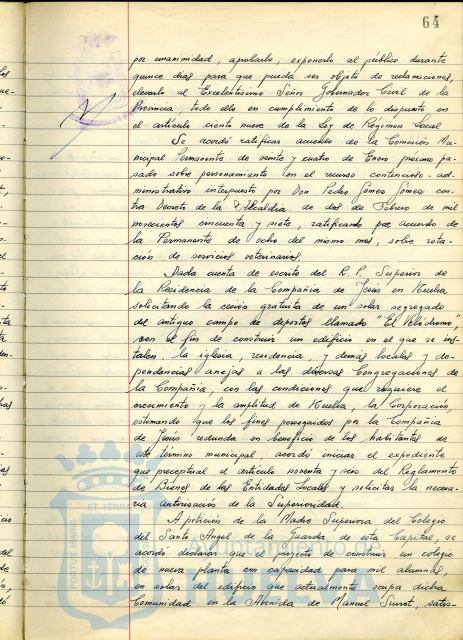 64
por unanimidad, aprobarlo, exponerlo al público durante
quince días para que pueda ser objeto de reclamaciones,
elevarlo al Excelentísimo Señor Gobernador Civil de la
Provincia, todo ello en cumplimiento de lo dispuesto en
el artículo ciento nueve de la Ley de Régimen Local
Se acordó ratificar acuerdo de la Comisión Mu-
nicipal Permanente de veinte y cuatro de Enero próximo pa-
sado sobre personamiento en el recurso contencioso-ad-
ministrativo interpuesto por Don Pedro Gómez Gómez con-
tra Decreto de la Alcaldía de dos de Febrero de mil
novecientos cincuenta y siete, ratificando por acuerdo de
la Permanente de ocho del mismo mes, sobre rota-
ción de servicios veterinarios.
Dada cuenta de escrito del R. P. Superior de
la Residencia de la Compañía de Jesús en Huelva,
solicitando la cesión gratuita de un solar segregado
del antiguo campo de deportes llamado "El Velódromo",
con el fin de construir un edificio en el que se ins-
talen, la iglesia, residencia, y demás locales y de-
pendencias anejas a las diversas Congregaciones de
la Compañía, con las condiciones que requiere el
crecimiento y la amplitud de Huelva, la Corporación,
estimando que los fines perseguidos por la Compañía
de Jesús redunda en beneficio de los habitantes de
este término municipal acordó iniciar el expediente
que preceptúa el artículo noventa y seis del Reglamento
de Bienes de las Entidades Locales y solicitar la necesa-
ria autorización de la Superioridad.
A petición de la Madre Superiora del Colegio
del Santo Angel de la Guarda, de esta Capital, se
acordó declarar que el proyecto de construir un colegio
de nueva planta con capacidad para mil alumnas,
en solar del edificio que actualmente ocupa dicha
Comunidad en la Avenida de Manuel Siurot, satis-
PORTUS MARIS
ET TERRAE